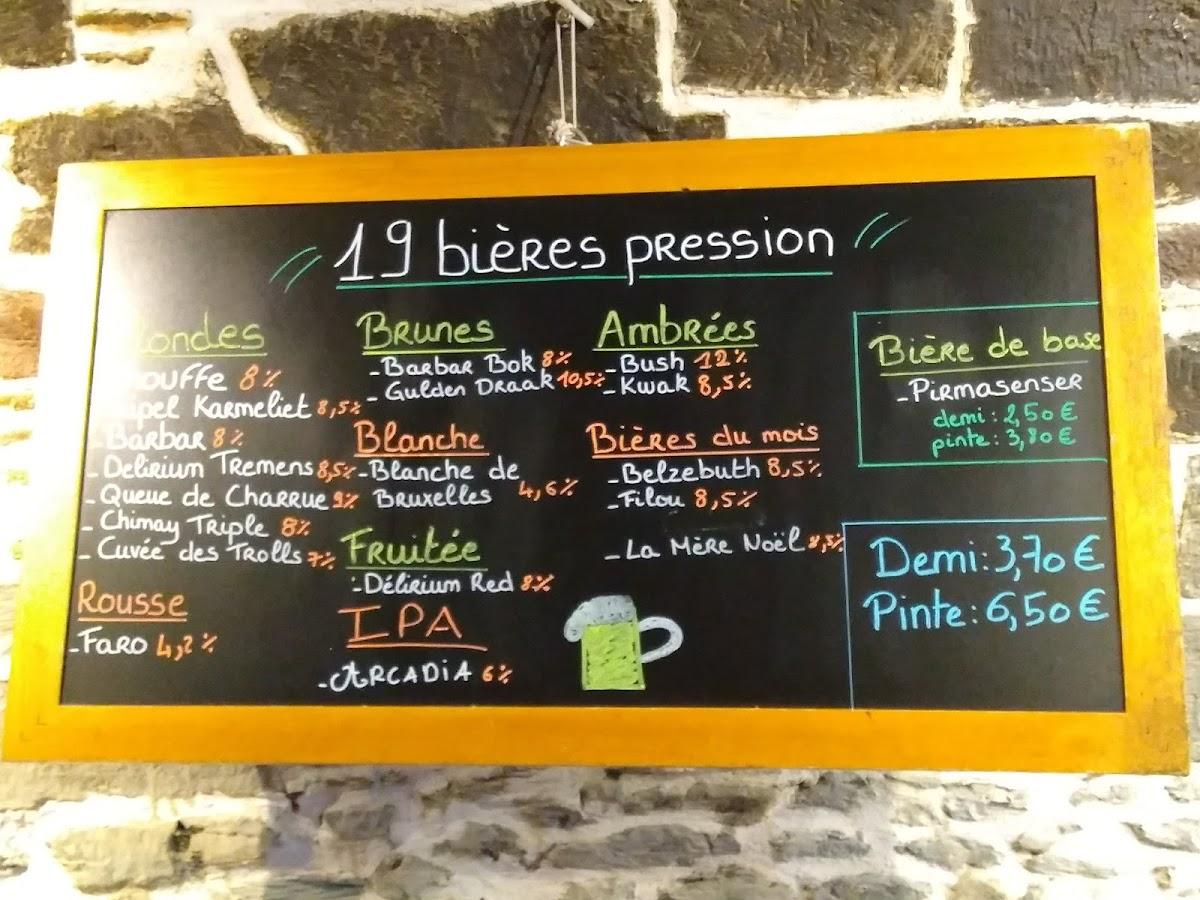 19 bières pression
Blondes
Chouffe 8%
Tripel Karmeliet 8,5%
- Barbar 8%
- Delirium Tremens 8,5%
- Queue de Charrue 9%
- Chimay Triple 8%
- Cuvée des Trolls 7%
Rousse
- Faro 4,2%
Brunes
- Barbar Bok 8%
- Gulden Draak 10,5%
Blanche
- Blanche de
Bruxelles 4,6%
Fruitée
- Délirium Red 8%
IPA
- Arcadia 6%
Ambrées
- Bush 12%
- Kwak 8,5%
Bières du mois
- Belzebuth 8,5%
- Filou 8,5%
- La Mère Noël
Bière de base
- Pirmasenser
demi : 2,50 €
pinte : 3,80 €
Demi : 3,70 €
Pinte : 6,50 €